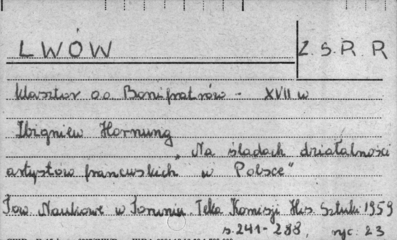 LWÓW
Z.S.R.R
Klasztor oo Bonifratrów - XVII w
Zbigniew Hornung
"Na śladach działalności
artystów francuskich w Polsce"
Tow. Naukowe w Toruniu. Teka Komisji His. Sztuki 1959
s. 241-288, ryc. 23